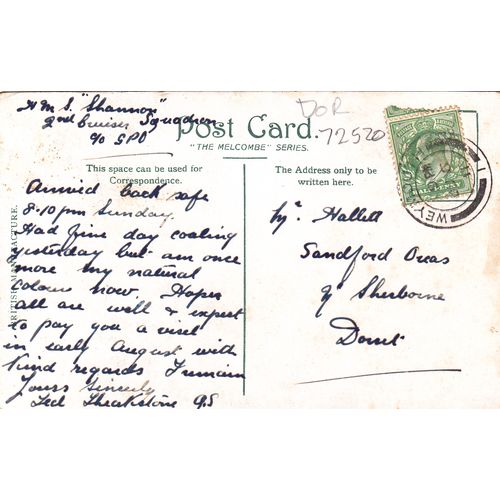 H M S. "Shannon"
2nd Cruiser Squadron
c/o GPO
DOR
72520
Post Card.
"THE MELCOMBE" SERIES.
This space can be used for
Correspondence.
The Address only to be
written here.
BRITISH MANUFACTURE.
Arrived back safe
8-10 pm Sunday.
Had fine day coaling
yesterday but am once
more my natural
colour now. Hope
all are well & expect
to pay you a visit
in early August with
Kind regards I remain
Yours Sincerely
Ted
Mr. Hallett
Sandford Orcas
Nr Sherborne
Dorset
WEY